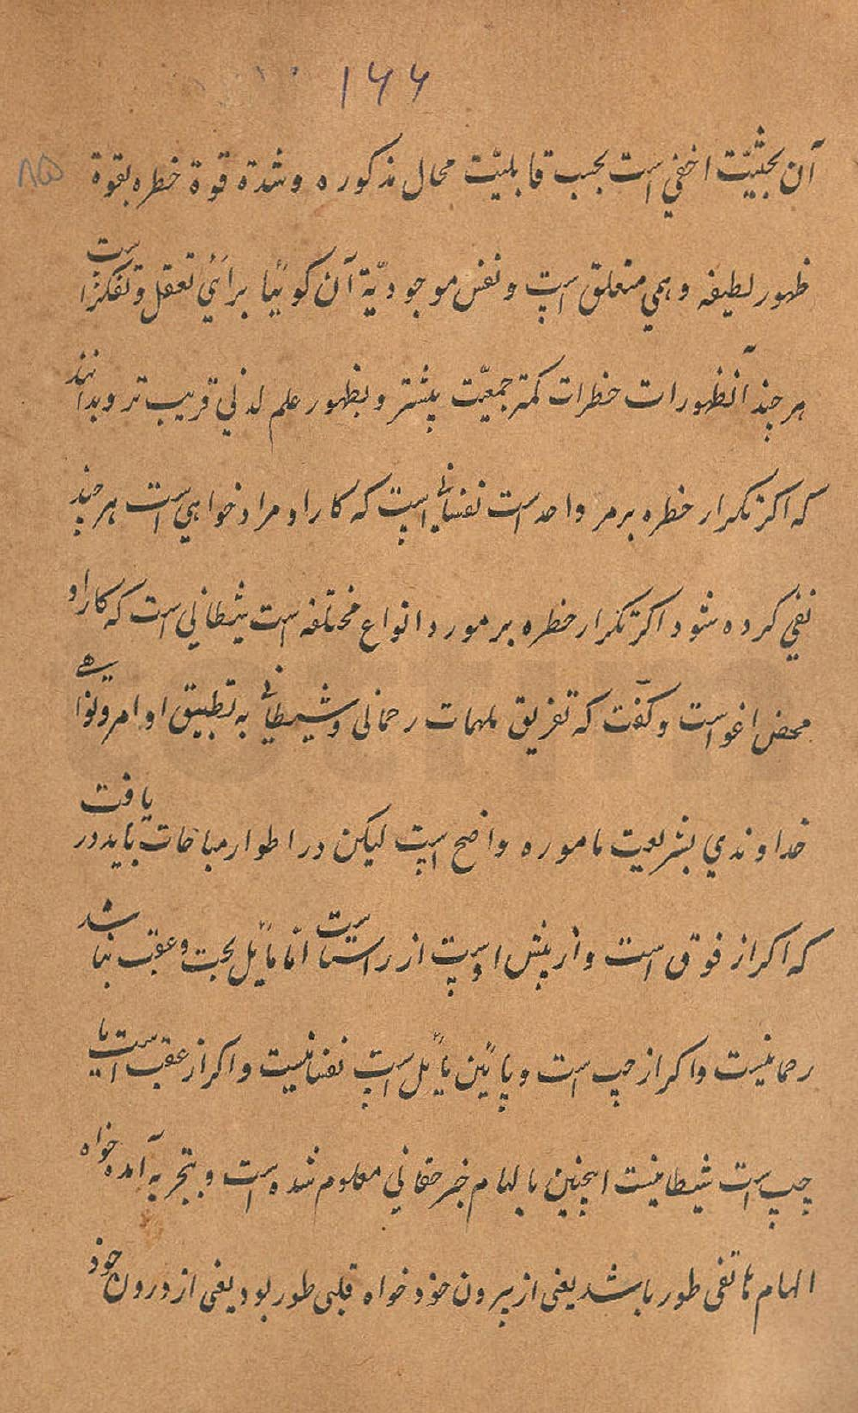 ۱۶۶
آن بحثیّت اخفی است بحسب قابلیّت محال مذکوره و شدة قوة خطره بقوة
ظهور لطیفه وهمی متعلق است و نفس موجودیّة آن کوئیا برائی تعقل و تفکر است
هر چند آنظهورات خطرات کمتر جمعیّت بیشتر و بظهور علم لدنی قریب تر و بدانند
که اکر تکرار خطره بر مر واحد است نفسانی است که کار او مراد خواهی است هر چند
نفی کرده شود اکر تکرار خطره بر مورد انواع مختلفه است شیطانی است که کار او
محض اغو است و کفت که تفریق ملهمات رحمانی و شیطانی به تطبیق اوامر و نواهی
خداوندی بشریعت ماموره واضح است لیکن در اطوار مباحات باید دریافت
که اکر از فوق است و از پیش است از راست است اما مایل بحت و عقب نباشد
رحمانیست و اکر از چپ است و پائین مایل است نفسانیست و اکر از عقب است یا
چپ است شیطانیست اینچنین بالهام خبر حقانی معلوم شده است و بتجربه آمده خواه
الهام هاتفی طور باشد یعنی از بیرون خود خواه قلبی طور بود یعنی از درون خود